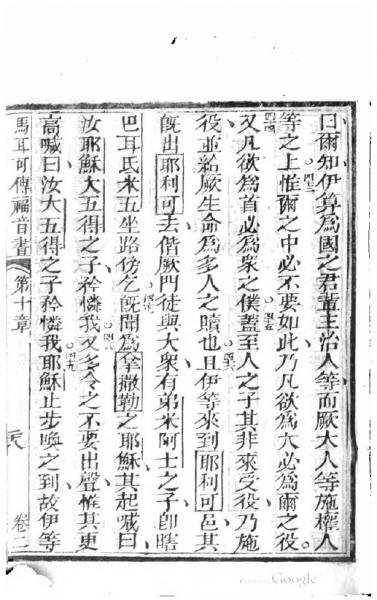 曰爾知伊算為國之君輩主治人等而厥大人等施權人
等之上惟爾之中必不要如此乃凡欲為大必為爾之役
又凡欲為首必為衆之僕蓋至人之子其非來受役乃施
役並給厥生命為多人之贖也且伊等來到耶利可邑其
既出耶利可去偕厥門徒與大衆有弟米阿士之子卽瞎
巴耳氏米五坐路傍乞既聞為拿撒勒之耶穌其起喊曰
汝耶穌大五得之子矜憐我又多令之不要出聲惟其更
高喊曰汝大五得之子矜憐我耶穌止步喚之到故伊等
馬耳可傳福音書 第十章 卷二
Google